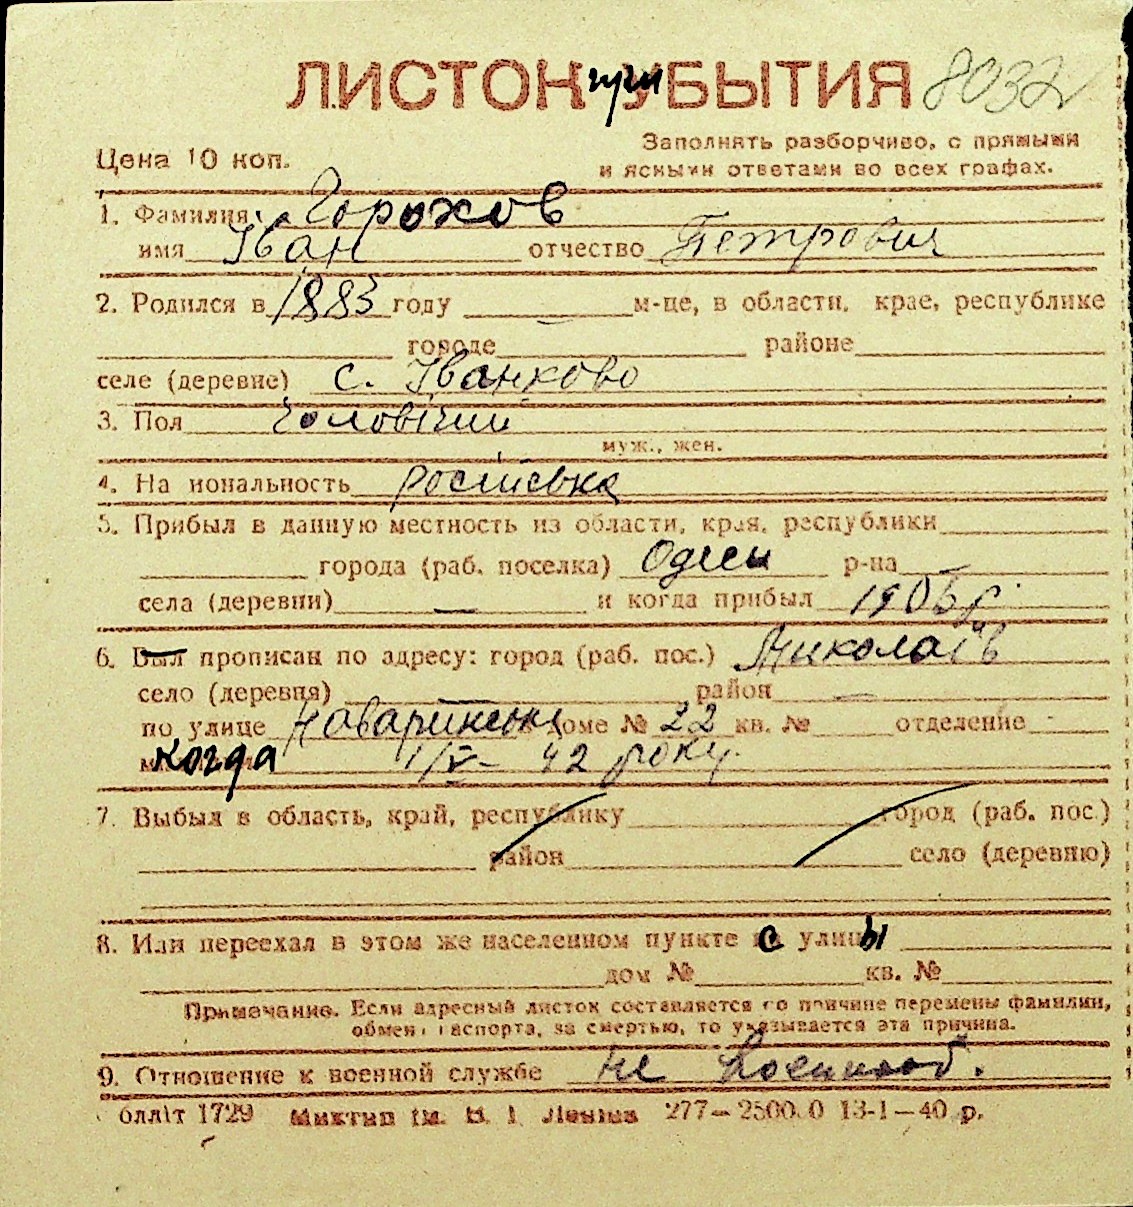 ЛИСТОК при УБЫТИЯ 8032
Цена 10 коп.
Заполнять разборчиво, с прямыми
и ясными ответами во всех графах.
1. Фамилия Горохов
имя Іван отчество Петрович
2. Родился в 1883 году — м-це, в области, крае, республике
городе районе
селе (деревне) с. Іванково
3. Пол Чоловічий
муж., жен.
4. На иональность російська
5. Прибыл в данную местность из области, края, республики
города (раб. поселка) Одеси р-на —
села (деревни) — и когда прибыл 1905 р.
6. Был прописан по адресу: город (раб. пос.) Миколаїв
село (деревня) — район —
по улице Наваринська доме № 22 кв. № отделение -
когда 1/V - 42 року.
7. Выбыл в область, край, республику город (раб. пос.)
район село (деревню)
8. Или переехал в этом же населенном пункте с улицы
дом № кв. №
Примечание. Если адресный листок составляется по причине перемены фамилии,
обмен паспорта, за смертью, то указывается эта причина.
9. Отношение к военной службе не военнооб.
олліт 1729 Миктип ім. В. І. Леніна 277—2500.0 13-1—40 р.